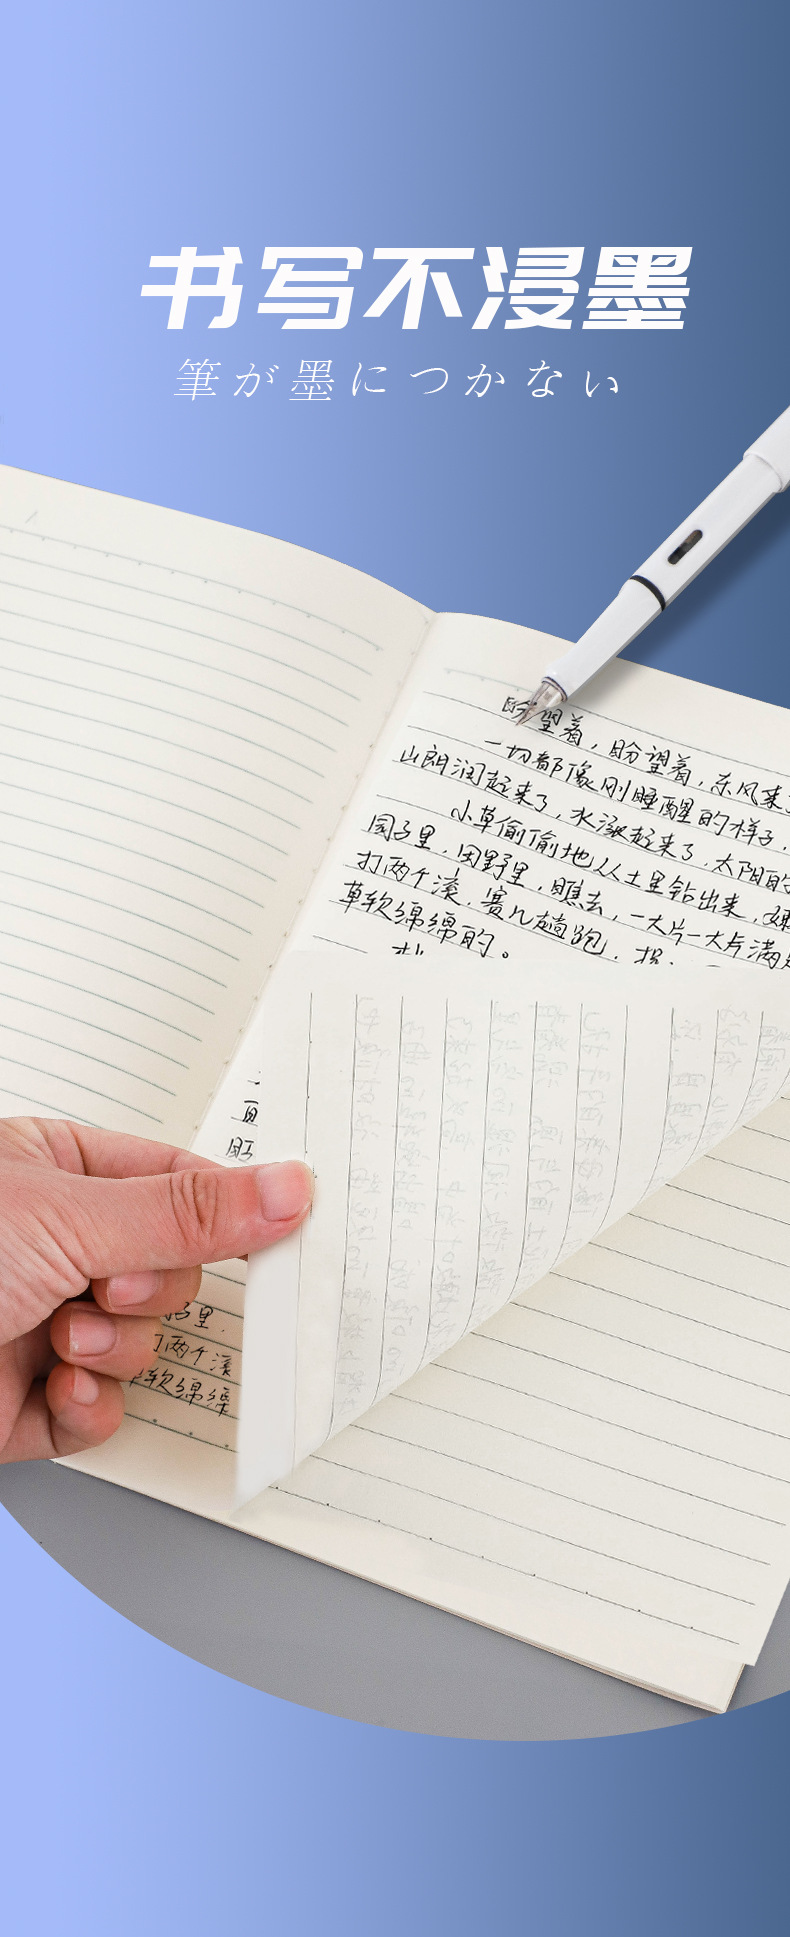 书写不浸墨
筆が墨につかない
盼望着，盼望着，东风来了
一切都像刚睡醒的样子，
山朗润起来了，水涨起来了，太阳的
小草偷偷地从土里钻出来，嫩
园子里，田野里，瞧去，一大片一大片满是
打两个滚，赛几趟跑，捉
草软绵绵的。
园子里，
打两个滚
草软绵绵